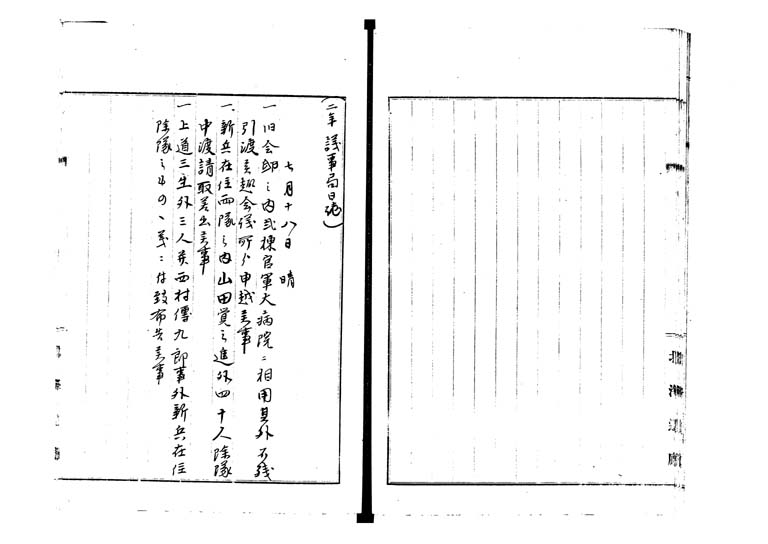 (二年 議事局日記)
七月十八日 晴
一旧会邸之内弐棟官軍大病院ニ相用其外不残
引渡候趣会議所ゟ申越候事
一新兵在住両隊之内山田賞之進外四十人除隊
申渡請取差出候事
一上道三生外三人并西村僊九郎事外新兵在住
除隊之
付致布告候事
北海道廳